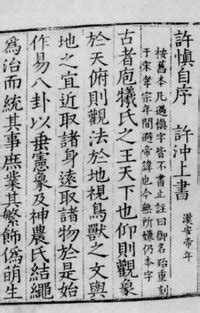 許慎自序 許沖上書 漢安帝年
按舊本凡遇慎字皆不書止註曰御名殆重刻
于宋孝宗年間避帝諱也今無所嫌仍本字
古者庖犧氏之王天下也仰則觀象
於天俯則觀法於地視鳥獸之文與
地之宜近取諸身遠取諸物於是始
作易八卦以垂憲象及神農氏結繩
為治而統其事庶業其繁飾偽萌生